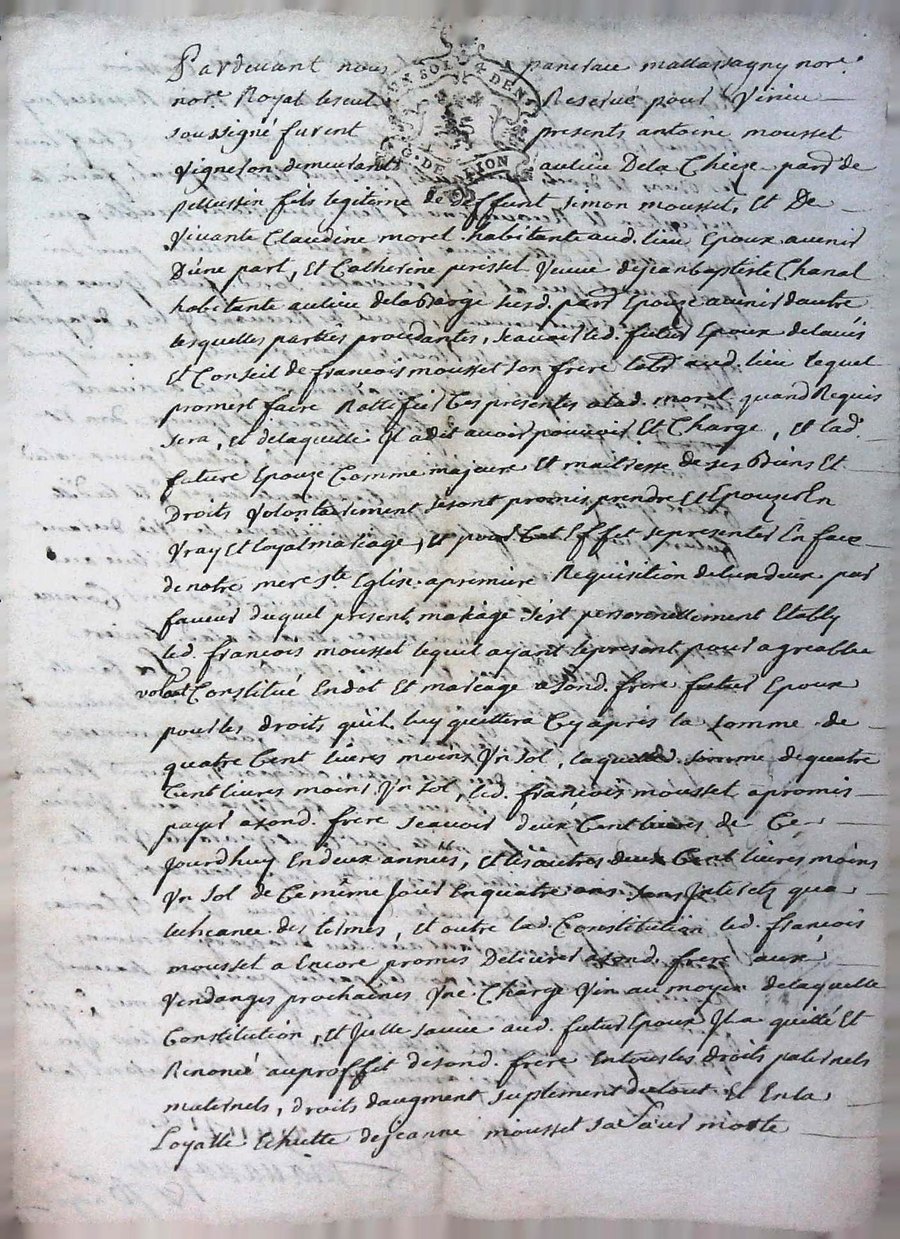 Pardevant nous pancrace mattassagny nore.
nore. Royal Reservé pour Virieu
soussigné furent presents antoine mousset
vigneron demeurant au lieu De la Cheze parse de
pellussin fils legitime de deffunt simon mousset, et De
vivante Claudine morel habitante aud. lieu Epoux avenir
D'une part, et Catherine perisset veuve de jean baptiste Chanal
habitante au lieu de la Barge susd. parse Epouze avenir d'autre
lesquelles parties procedantes, scavoir led. futur Epoux de l'avis
et Conseil de francois mousset son frere aud. lieu lequel
promest faire Rattifier Ces presentes a lad. morel quand Requis
sera, et de laquelle il a dit avoir pouvoir et Charge, et lad.
future Epouze Comme majeure et maitresse de ses Biens et
Droits volontairement se sont promis prendre et Epouzer En
vray et loyal mariage, et pour Cet Effet se presenter En face
de notre mere ste Eglise a premiere Requisition de l'un d'eux par
faveur duquel present mariage s'est personnellement Etably
led. francois mousset lequel ayant le present pour agreable
a Constitué En dot et mariage a sond. frere futur Epoux
pour les droits qu'il luy quittera Cy apres la somme de
quatre Cent livres moins un sol, laquelle somme de quatre
Cent livres moins un sol, led. francois mousset a promis
payer a sond. frere scavoir deux Cent livres de Ce
jourdhuy En deux années, et les autres deux Cent livres moins
un sol de Ce même jour En quatre ans sans interets qua
lecheance des termes, et outre lad. Constitution led. francois
mousset a Encore promis Delivrer a sond. frere aux
vendanges prochaines une Charge vin au moyen de laquelle
Constitution, et icelle sauve aud. futur Epoux il a quitté et
Renoncé au proffit de sond. frere En tous les droits paternels
maternels, droits d'augment suplement du tout et En la
Loyalle Echutte de jeanne mousset sa sœur morte